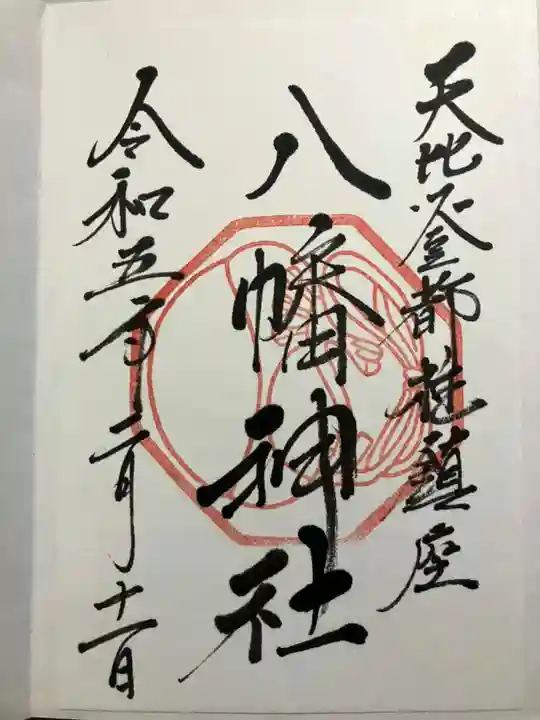 天比登都柱鎮座
八幡神社
令和五年二月十一日